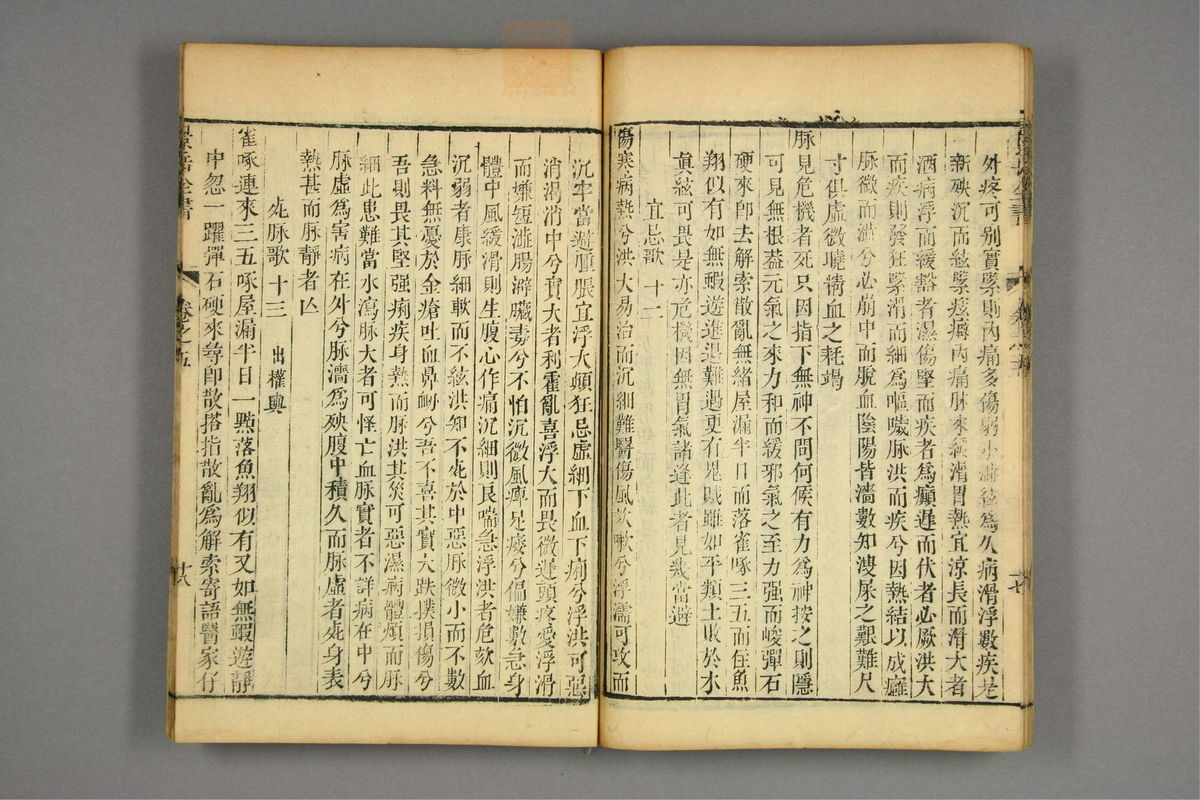 外疼可别實緊則內痛多傷弱小濇絃爲久病滑浮數疾是
新殃沉而絃緊痃癖內痛脉來緩滑胃熱宜涼長而滑大者
酒病浮而緩豁者濕傷堅而疾者爲癲遲而伏者必厥洪大
而疾則發狂緊滑而細爲嘔噦脉洪而疾兮因熱結以成癰
脉微而濇兮必崩中而脫血陰陽皆濇數知溲尿之艱難尺
寸俱虛微曉精血之耗竭
脉見危機者死只因指下無神不問何候有力爲神按之則隱
可見無根葢元氣之來力和而緩邪氣之至力强而峻彈石
硬來卽去解索散亂無緒屋漏半日而落雀啄三五而住魚
翔似有如無蝦遊進退難遇更有鬼賊雖如平類土敗於水
眞絃可畏是亦危機因無胃氣諸逢此者見幾當避
宜忌歌 十二
傷寒病熱兮洪大易治而沉細難醫傷風欬嗽兮浮濡可攻而
沉牢當避腫脹宜浮大顚狂忌虛細下血下痢兮浮洪可惡
消渴消中兮實大者利霍亂喜浮大而畏微遲頭疼愛浮滑
而嫌短濇腸澼臟毒兮不怕沉微風痺足痿兮偏嫌數急身
體中風緩滑則生腹心作痛沉細則良喘急浮洪者危欬血
沉弱者康脉細軟而不絃洪知不死於中惡脉微小而不數
急料無憂於金瘡吐血鼻衂兮吾不喜其實大跌撲損傷兮
吾則畏其堅强痢疾身熱而脉洪其災可惡濕病體煩而脉
細此患難當水瀉脉大者可怪亡血脉實者不詳病在中兮
脉虛爲害病在外兮脉濇爲殃腹中積久而脉虛者死身表
熱甚而脉靜者亾
死脉歌 十三 出權輿
雀啄連來三五啄屋漏半日一㸃落魚翔似有又如無蝦遊靜
中忽一躍彈石硬來尋卽散搭指散亂爲解索寄語醫家仔
景岳全書
卷之五
廿八